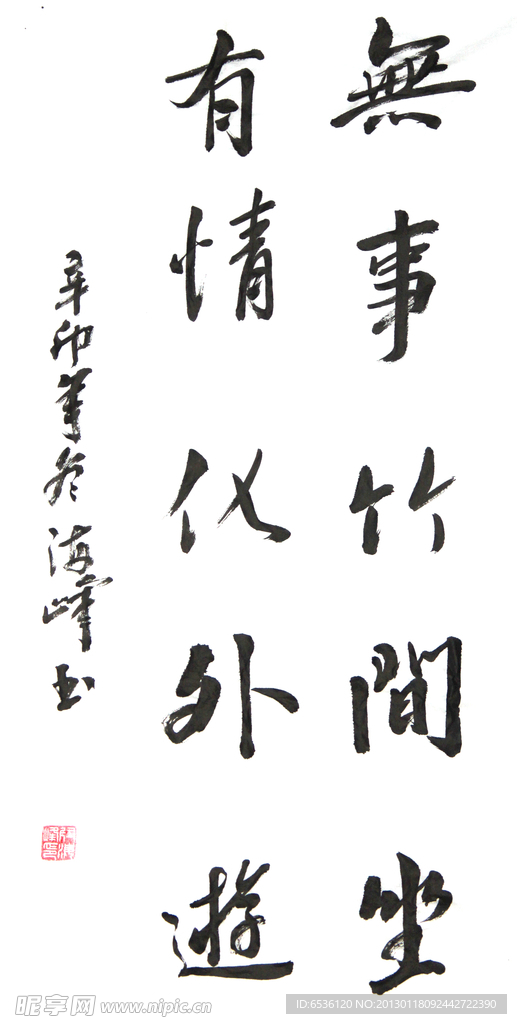 無事竹間坐
有情化外遊
辛卯年冬海峰书
昵享网 www.nipic.cn
ID:6536120 NO:20130118092442722390